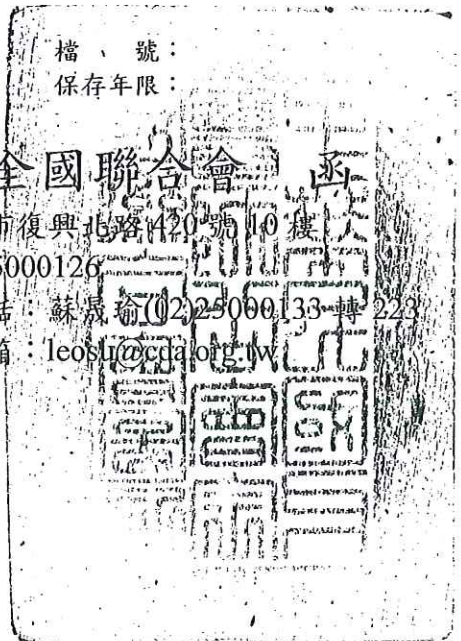 檔　號：
保存年限：
全國聯合會　函
市復興北路420號10樓
5000126
話：蘇晟瑜(02)25000133轉223
箱：leosu@cda.org.tw